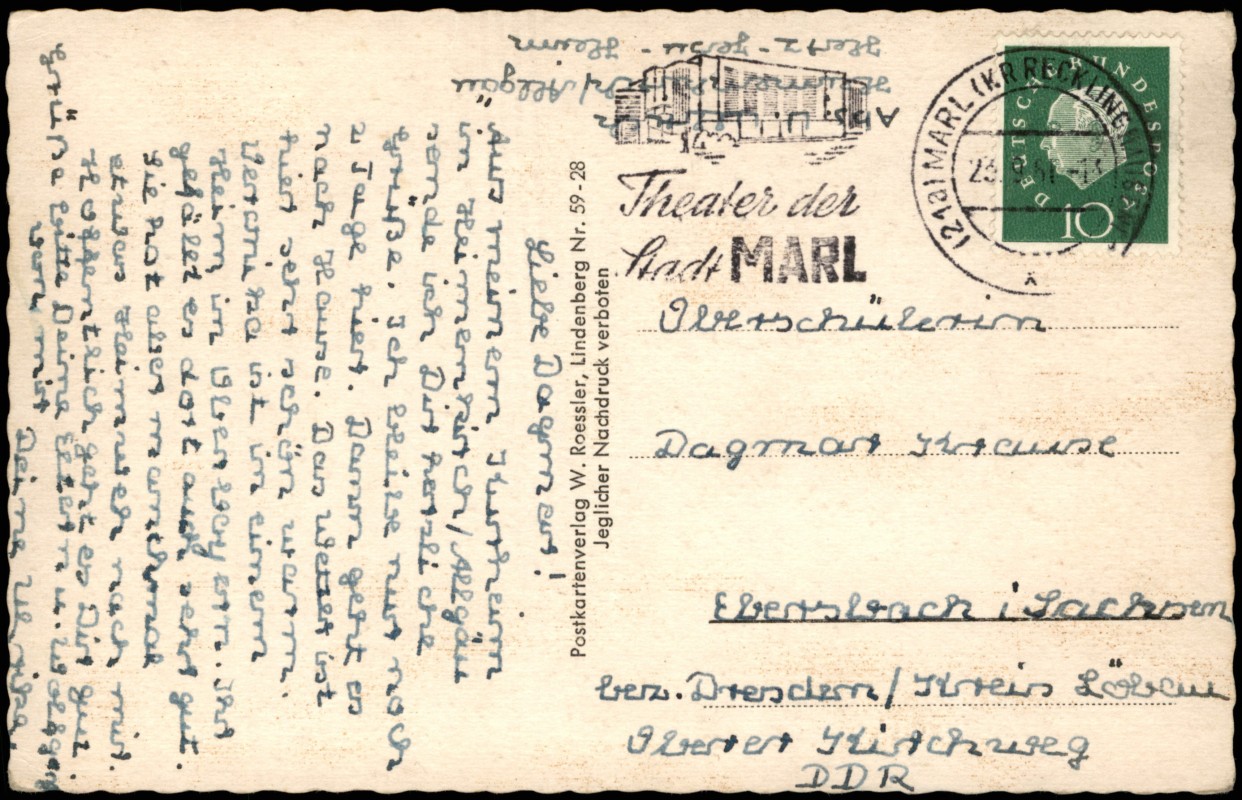 Liebe Dagmar!
Aus meinem Kurheim
in Heimenkirch/Allgäu
sende ich Dir herzliche
Grüße. Ich bleibe nur noch
2 Tage hier. Dann geht es
nach Hause. Das Wetter ist
hier sehr schön warm.
Veronika ist in einem
Heim in Ihr
gefällt es dort auch sehr gut.
Sie hat aber manchmal
etwas Heimweh nach mir.
Hoffentlich geht es Dir gut.
Grüße bitte Deine Eltern u. Wolfgang
vorn mit
Deine Ulrike.
Postkartenverlag W. Roessler, Lindenberg Nr. 59-28
Jeglicher Nachdruck verboten
Abs.
Heimenkirch/Allgäu
Herz-Jesu-Heim
Theater der
Stadt MARL
(21a) MARL (KR RECKLINGHAUSEN)
23.9.61
DEUTSCHE BUNDESPOST
10
Oberschülerin
Dagmar Krause
Ebersbach i/Sachsen
bez. Dresden/Kreis Löbau
Oberer Kirchweg
DDR